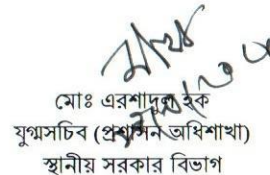 মোঃ এরশাদুল হক
যুগ্মসচিব (প্রশাসন অধিশাখা)
স্থানীয় সরকার বিভাগ